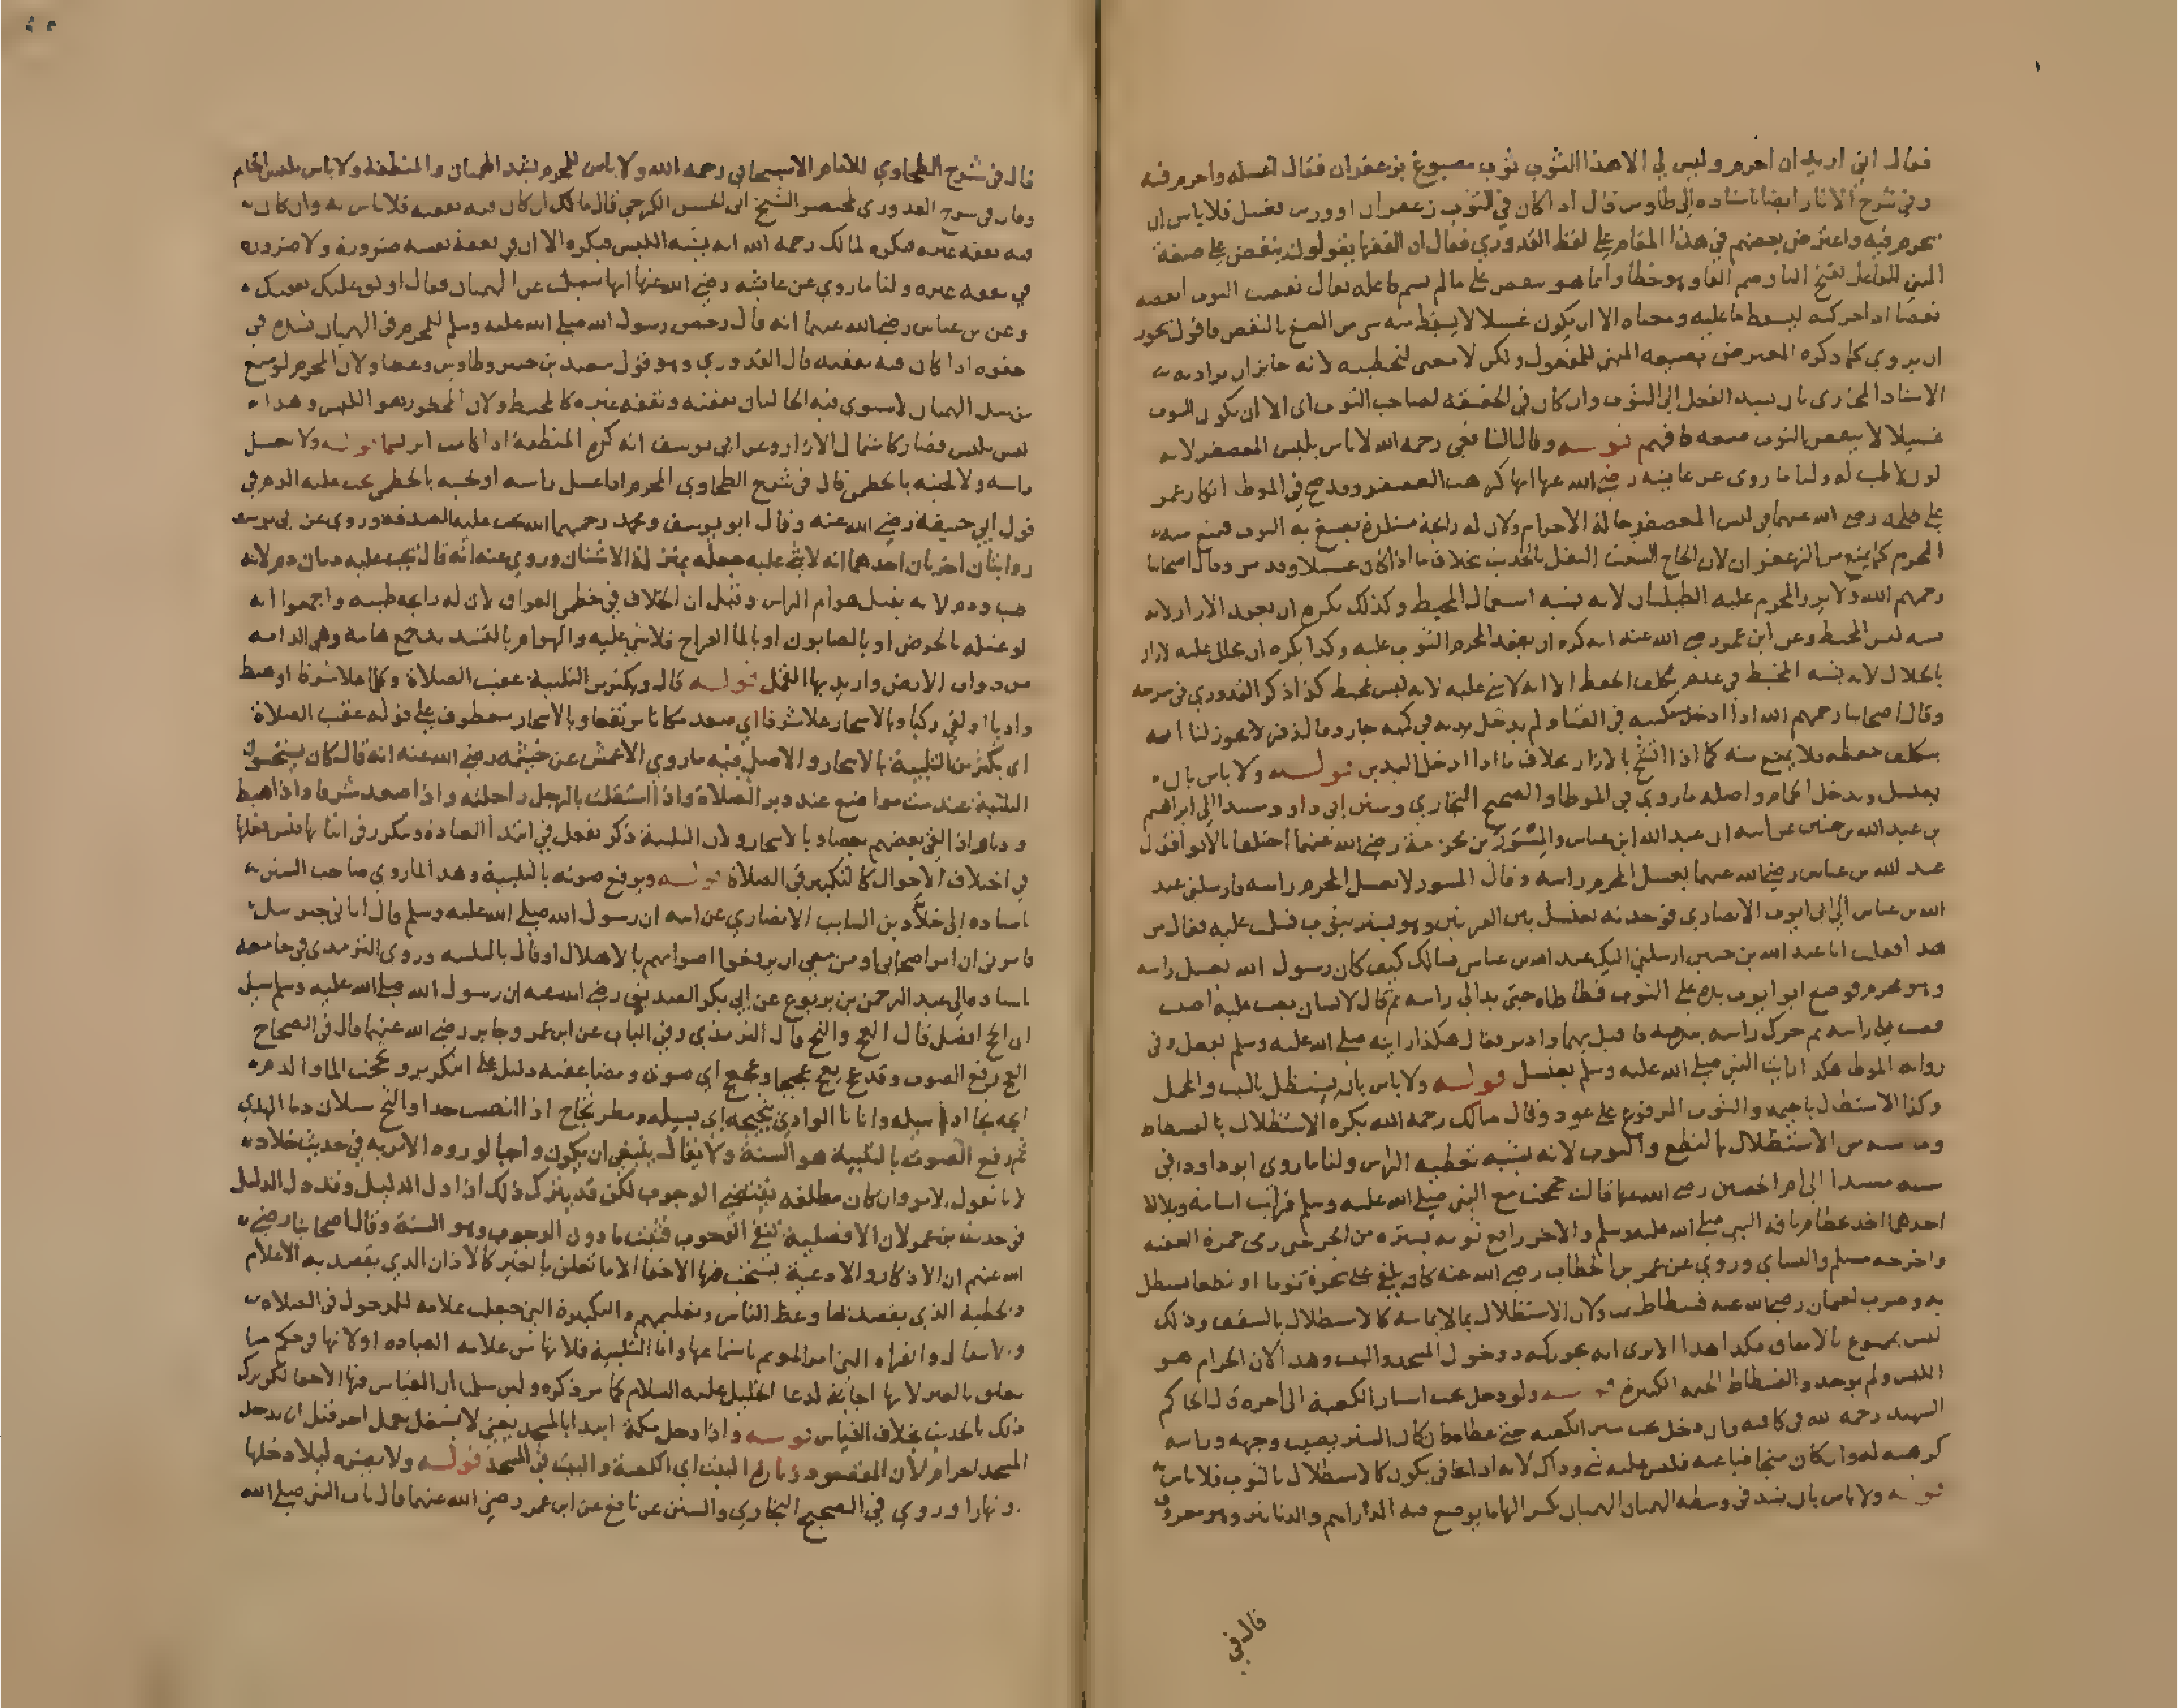 فقال اني اريد ان احرم وليس لي الا هذا الثوب ثوب مصبوغ بزعفران فقال اغسله واحرم فيه
وفي شرح الاثار ايضا باسناده الى طاوس قال اذا كان في الثوب زعفران او ورس فغسل فلا باس ان
يحرم فيه واعترض بعضهم في هذا المقام على لفظ القدوري فقال ان الفقها يقولون ينفض على صيغة
المبني للفاعل بفتح اليا وضم الفا وهو خطا وانما هو ينفض على ما لم يسم فاعله يقال نفضت الثوب انفضه
نفضا اذا حركته ليسقط ما عليه ومعناه الا ان يكون غسيلا لا يسقط منه شي من الصبغ بالنفض فاقول يجوز
ان يروى كما ذكره المعترض بصيغة المبني للمفعول ولكن لا معنى لتخطيه لانه جايز ان يراد به
الاسناد المجازي بان يسند الفعل الى الثوب وان كان في الحقيقة لصاحب الثوب اي الا ان يكون الثوب
غسيلا لا ينفض الثوب صبغه فافهم قوله وقال الشافعي رحمه الله لا باس بلبس المعصفر لانه
لون لا طيب له ولنا ما روى عن عايشة رضي الله عنها انها كرهت المعصفر وقد صح في الموطا انكار عمر
على طلحة رضي الله عنهما في لبس المعصفر حالة الاحرام ولان له رايحة مستلذة يصبغ به الثوب فمنع منه
المحرم كما يمنع من الزعفران لان الحاج الشعث التفل بالحديث بخلاف ما اذا كان غسيلا وقد مر وقال اصحابنا
رحمهم الله ولا يزر المحرم عليه الطيلسان لانه يشبه استعمال المخيط وكذلك يكره ان يعقد الازار لانه
يشبه لبس المخيط وعن ابن عمر رضي الله عنه انه كره ان يعقد المحرم الثوب عليه وكذا يكره ان يخلل عليه ازار
بالخلال لانه يشبه المخيط في عدم تكلف الحفظ الا انه لا شي عليه لانه ليس بمخيط كذا ذكر القدوري في شرحه
وقال اصحابنا رحمهم الله اذا ادخل منكبيه في القبا ولم يدخل يديه في كميه جاز وقال زفر لا يجوز لنا انه
يتكلف حفظه فلا يمنع منه كما اذا اتشح بالازار بخلاف ما اذا ادخل اليدين قوله ولا باس بان
يغتسل ويدخل الحمام واصله ما روي في الموطا والصحيح البخاري وسنن ابي داود مسندا الى ابراهيم
بن عبد الله بن حنين عن ابيه ان عبد الله ابن عباس والمسور بن مخرمة رضي الله عنهما اختلفا بالابوا فقال
عبد الله بن عباس رضي الله عنهما يغسل المحرم راسه وقال المسور لا يغسل المحرم راسه فارسلني عبد
الله بن عباس الى ابي ايوب الانصاري فوجدته يغتسل بين القرنين وهو يستر بثوب فسلمت عليه فقال من
هذا فقلت انا عبد الله بن حنين ارسلني اليك عبد الله بن عباس يسالك كيف كان رسول الله يغسل راسه
وهو محرم فوضع ابو ايوب يده على الثوب فطاطاه حتى بدا لي راسه ثم قال لانسان يصب عليه اصب
فصب على راسه ثم حرك راسه بيديه فاقبل بهما وادبر فقال هكذا رايته صلى الله عليه وسلم يفعل وفي
رواية الموطا هكذا رايت النبي صلى الله عليه وسلم يغتسل قوله ولا باس بان يستظل بالبيت والمحمل
وكذا الاستظلال بالخيمة والثوب المرفوع على عود وقال مالك رحمه الله يكره الاستظلال بالفسطاط
وما يشبه من الاستظلال بالنطع والثوب لانه يشبه تغطية الراس ولنا ما روى ابو داود في
سننه مسندا الى ام الحصين رضي الله عنها قالت حججت مع النبي صلى الله عليه وسلم فرايت اسامة وبلالا
احدهما اخذ بخطام ناقة النبي صلى الله عليه وسلم والاخر رافع ثوبه يستره من الحر حتى رمى جمرة العقبة
واخرجه مسلم والنساي وروي عن عمر بن الخطاب رضي الله عنه كان يلقي على شجرة ثوبا او نطعا يستظل
به وضرب لعثمان رضي الله عنه فسطاط بمنى ولان الاستظلال بما لا يماسه كالاستظلال بالسقف وذلك
ليس بممنوع بالاتفاق فكذا هذا الا يرى انه يجوز له دخول المسجد والبيت وهذا لان الحرام هو
اللبس ولم يوجد والفسطاط الخيمة الكبيرة قوله ولو دخل تحت استار الكعبة الى اخره قال الحاكم
الشهيد رحمه الله في كافيه وان دخل تحت ستر الكعبة حتى غطاه فان كان الستر يصيب وجهه وراسه
كرهته له وان كان متجافيا عنه فليس عليه شي وذاك لانه اذا تجافى يكون كالاستظلال بالثوب فلا باس به
قوله ولا باس بان يشد في وسطه الهميان الهميان بكسر الها ما يوضع فيه الدراهم والدنانير وهو معروف
قال في
قال في شرح الطحاوي للامام الاسبيجابي رحمه الله ولا باس للمحرم بشد الهميان والمنطقة ولا باس بلبس الخاتم
وقال في شرح القدوري لمختصر الشيخ ابي الحسن الكرخي قال مالك ان كان فيه نفقته فلا باس به وان كان
فيه نفقة غيره فيكره لمالك رحمه الله انه يشبه اللبس فيكره الا ان في نفقة نفسه ضرورة ولا ضرورة
في نفقة غيره ولنا ما روي عن عايشة رضي الله عنها انها سيلت عن الهميان فقال اوثق عليك نفقتك
وعن بن عباس رضي الله عنهما انه قال رخص رسول الله صلى الله عليه وسلم للمحرم في الهميان يشده في
حقوه اذا كان فيه نفقته قال القدوري وهو قول سعيد بن جبير وطاوس وعطا ولان المحرم لو منع
من شد الهميان لاستوى فيه الحالتان نفقته ونفقة غيره كالمخيط ولان المحظور هو اللبس وهذا
ليس بلبس فصار كاشتمال الازار وعن ابي يوسف انه كره المنطقة اذا كانت ابريسما قوله ولا يغسل
راسه ولا لحيته بالخطمي قال في شرح الطحاوي المحرم اذا غسل راسه او لحيته بالخطمي يجب عليه الدم في
قول ابي حنيفة رضي الله عنه وقال ابو يوسف ومحمد رحمهما الله يجب عليه الصدقة وروي عن ابي يوسف
روايتان اخريان احدهما انه لا شي عليه جعله بمنزلة الاشنان وروي عنه انه قال يجب عليه دمان دم لانه
طيب ودم لانه يقتل هوام الراس وقيل ان الخلاف في خطمي العراق لان له رايحة طيبة واجمعوا انه
لو غسله بالحرض او بالصابون او بالما القراح فلا شي عليه والهوام بالتشديد جمع هامة وهي الدابة
من دواب الارض واريد بها القمل قوله قال ويكثر من التلبية عقيب الصلاة وكلما علا شرفا او هبط
واديا او لقي ركبا وبالاسحار علا شرفا اي صعد مكانا مرتفعا وبالاسحار معطوف على قوله عقب الصلاة
اي يكثر من التلبية بالاسحار والاصل فيه ما روي الاعمش عن خيثمة رضي الله عنه انه قال كان يستحبون
التلبية عند ست مواضع عند دبر الصلاة واذا استقلت بالرجل راحلته واذا صعد شرفا واذا هبط
واديا واذا لقي بعضهم بعضا وبالاسحار ولان التلبية ذكر تفعل في ابتدا العبادة وتكرر في اثنايها فتفعلها
في اختلاف الاحوال كالتكبير في الصلاة قوله ويرفع صوته بالتلبية وهذا لما روي صاحب السنن
باسناده الى خلاد بن السايب الانصاري عن ابيه ان رسول الله صلى الله عليه وسلم قال اتاني جبريل
فامرني ان امر اصحابي او من معي ان يرفعوا اصواتهم بالاهلال او قال بالتلبية وروى الترمذي في جامعه
باسناده الى عبد الرحمن بن يربوع عن ابي بكر الصديق رضي الله عنه ان رسول الله صلى الله عليه وسلم سيل
اي الحج افضل قال العج والثج قال الترمذي وفي الباب عن ابن عمر وجابر رضي الله عنهما قال في الصحاح
العج رفع الصوت وقد عج يعج عجيجا وعجعج اي صوت ومضاعفته دليل على التكرير وثججت الما والدم
اثجه ثجا اذا سيلته واتانا الوادي بثجيجه اي بسيله ومطر ثجاج اذا انصب جدا والثج سيلان دما الهدي
ثم رفع الصوت بالتلبية هو السنة ولا يقال ينبغي ان يكون واجبا لورود الامر به في حديث خلاد
لانا نقول الامر وان كان مطلقه يقتضي الوجوب لكن قد يترك ذلك اذا دل الدليل وقد دل الدليل
في حديث بن عمر لان الافضلية تنفي الوجوب فثبت ما دون الوجوب وهو السنة وقال اصحابنا رضي
الله عنهم ان الاذكار والادعية يستحب فيها الاخفا الا ما تعلق بالغير كالاذان الذي يقصد به الاعلام
والخطبة الذي يقصد بها وعظ الناس وتعليمهم والتكبيرة التي جعلت علامة للدخول في الصلاة
والانتقال والقراة التي امر الموتم باستماعها واما التلبية فلانها من علامة العبادة اولانها في حكم ما
يتعلق بالغير لانها اجابة لدعا الخليل عليه السلام كما مر ذكره ولين سلمنا ان القياس فيها الاخفا لكن يترك
ذلك بالحديث بخلاف القياس قوله واذا دخل مكة ابتدا بالمسجد يعني لا يشتغل بعمل اخر قبل ان يدخل
المسجد الحرام لان المقصود زيارة البيت اي الكعبة والبيت في المسجد قوله ولا يضره ليلا دخلها
او نهارا وروي في الصحيح البخاري والسنن عن نافع عن ابن عمر رضي الله عنهما قال بات النبي صلى الله